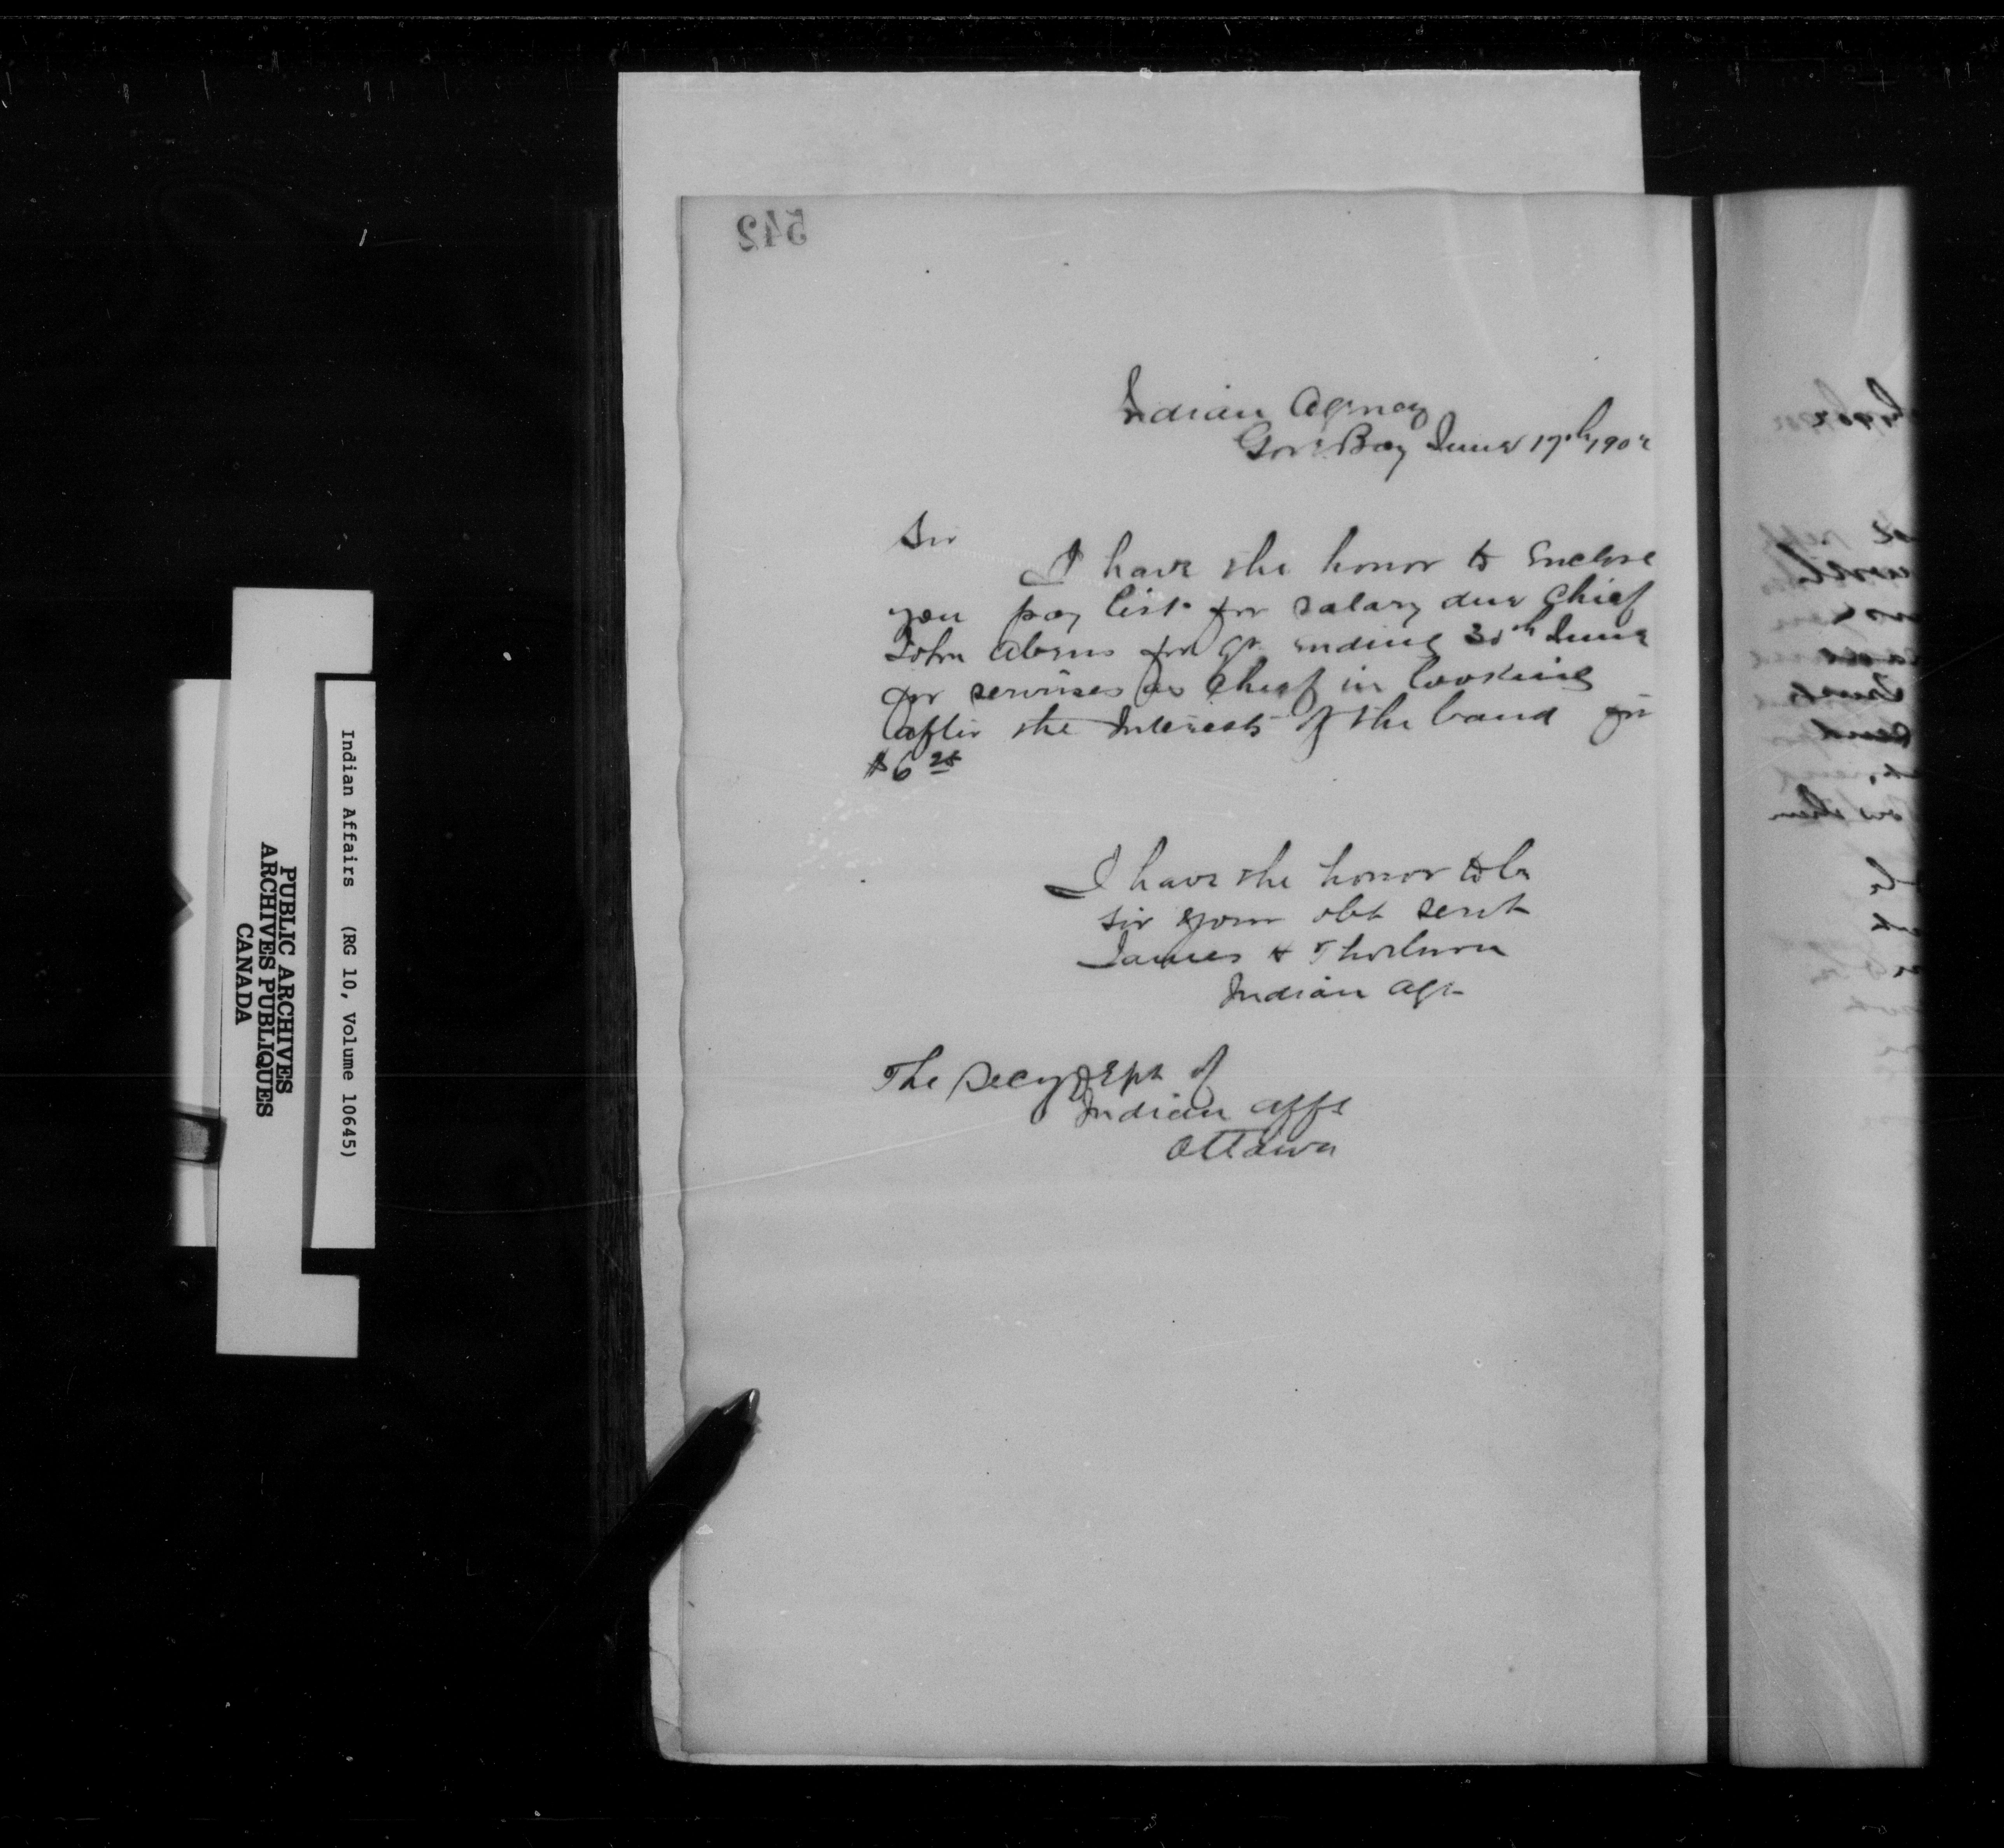 542
Indian Agency
Gore Bay June 17th, 1902
Sir
I have the honor to Enclose
you pay list for salary due Chief
John Abens for qr ending 30th June
for services as Chief in looking
after the Interests of the band for
$6 25
I have the honor to be
sir your obt servt
James H Thorburn
Indian Agt
The Secy Dept of
Indian Affs
Ottawa
Indian Affairs (RG 10, Volume 10645)
PUBLIC ARCHIVES
ARCHIVES PUBLIQUES
CANADA